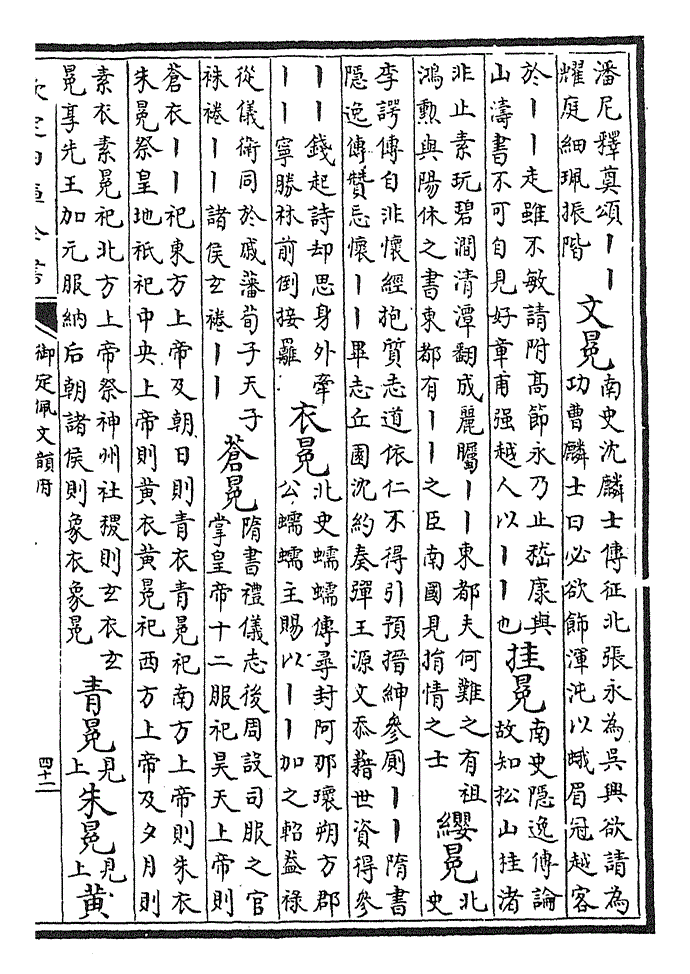 潘尼釋奠頌丨丨
耀庭細珮振階
文冕
南史沈麟士傳征北張永為吳興欲請為
功曹麟士曰必欲飾渾沌以蛾眉冠越客
於丨丨走雖不敏請附高節永乃止嵇康與
山濤書不可自見好章甫强越人以丨丨也
挂冕
南史隱逸傳論
故知松山挂渚
非止素玩碧澗清潭翻成麗矚丨丨東都夫何難之有祖
鴻勲與陽休之書東都有丨丨之臣南國見捐情之士
纓冕
北
史
李諤傳自非懷經抱質志道依仁不得引預搢紳參廁丨丨隋書
隱逸傳贊忘懷丨丨畢志丘園沈約奏彈王源文忝藉世資得參
丨丨錢起詩却思身外牽
丨丨寧勝林前倒接䍦
衣冕
北史蠕蠕傳尋封阿那瓌朔方郡
公蠕蠕主賜以丨丨加之軺葢祿
從儀衛同於戚藩荀子天子
袾裷丨丨諸侯玄裷丨丨
蒼冕
隋書禮儀志後周設司服之官
掌皇帝十二服祀昊天上帝則
蒼衣丨丨祀東方上帝及朝日則青衣青冕祀南方上帝則朱衣
朱冕祭皇地祇祀中央上帝則黄衣黄冕祀西方上帝及夕月則
素衣素冕祀北方上帝祭神州社稷則玄衣玄
冕享先王加元服納后朝諸侯則象衣象冕
青冕
見上
朱冕
見上
黄
欽定四庫全書
御定佩文韻府
四十二